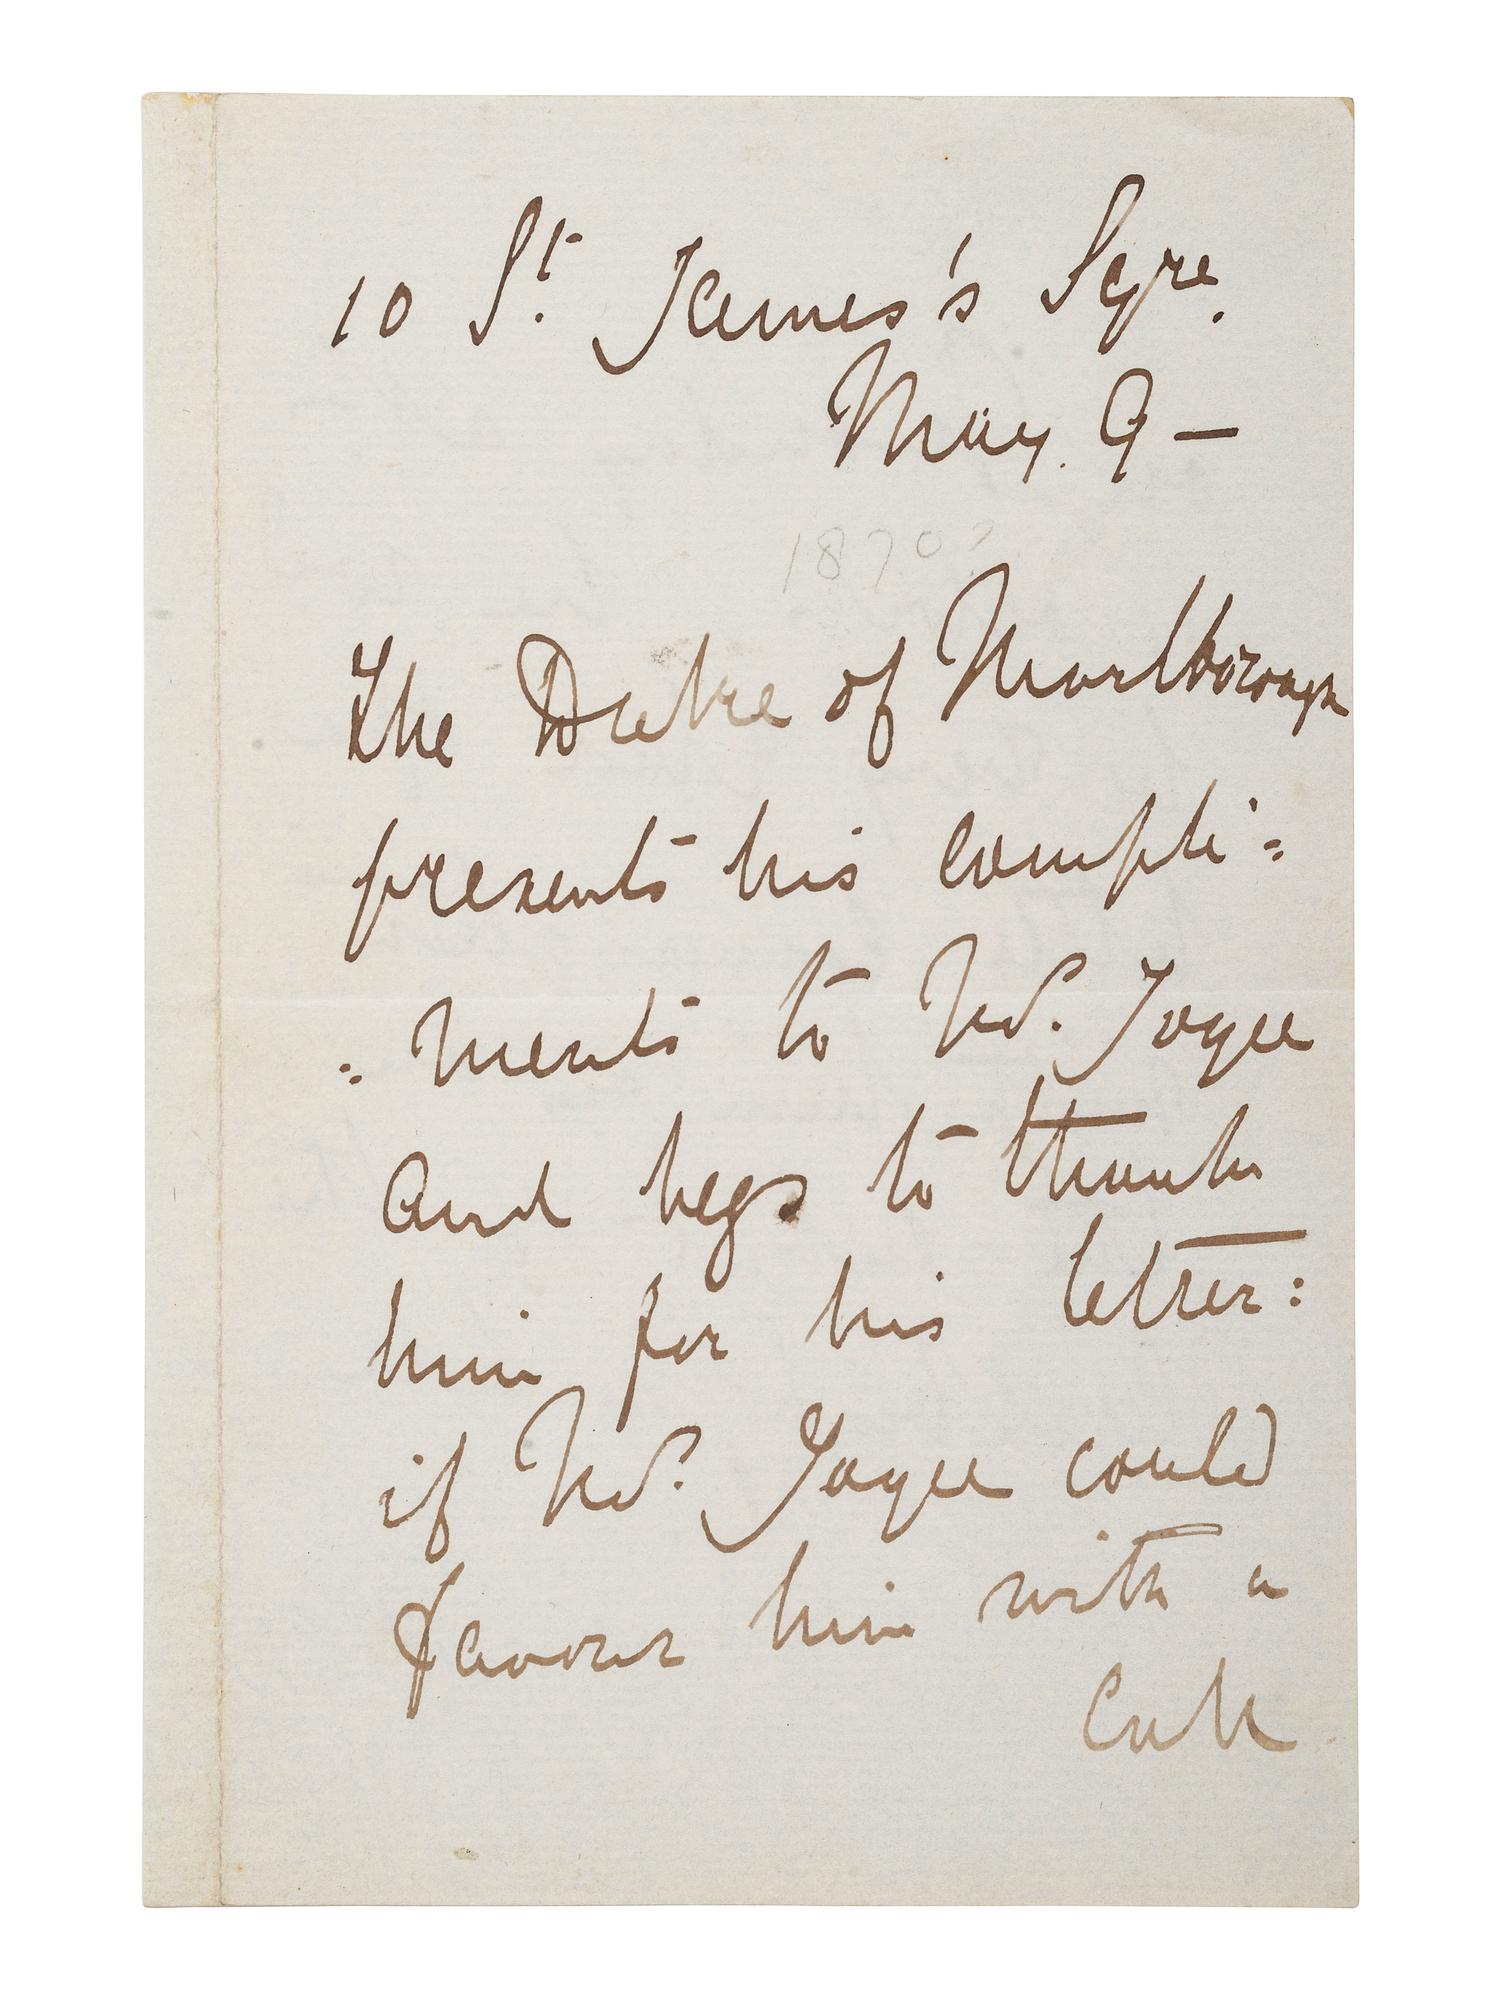 10 St. James's Sqre.
May. 9 —
1870?
The Duke of Marlborough
presents his compli=
=ments to Mr. Joyce
and begs to thank
him for his letter:
if Mr. Joyce could
favour him with a
Call